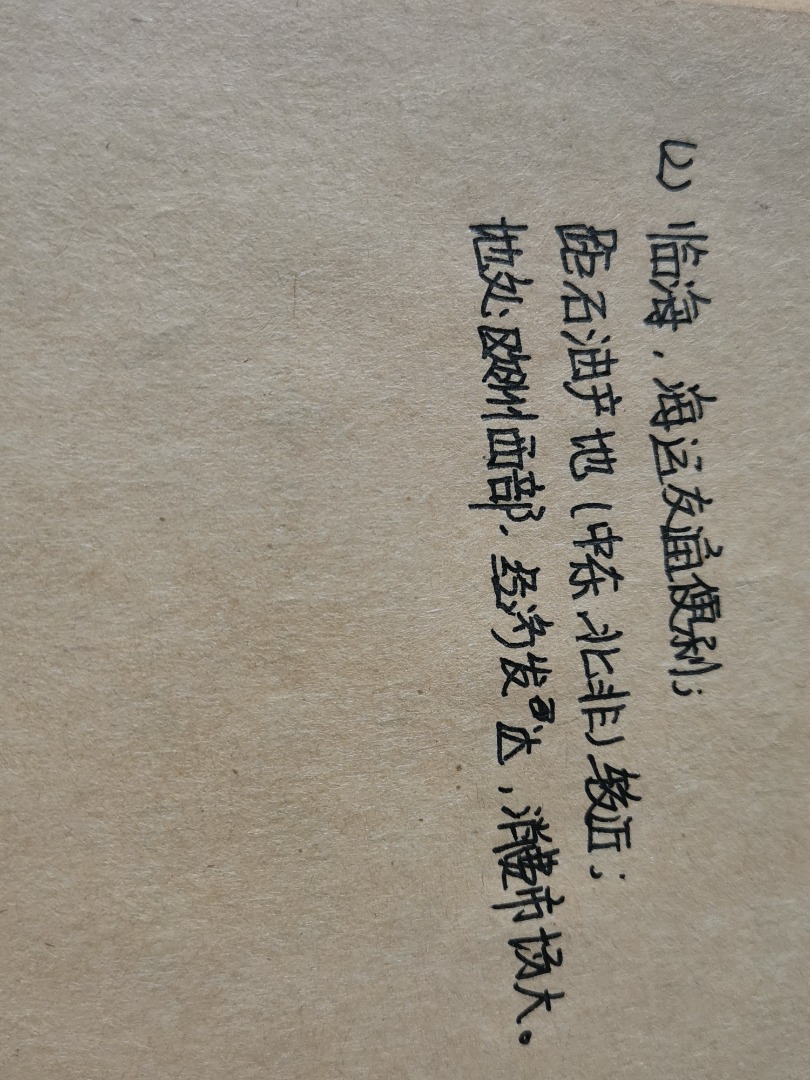 (2) 临海，海运交通便利；
距石油产地(中东、北非)较近；
地处欧洲西部，经济发达，消费市场大。